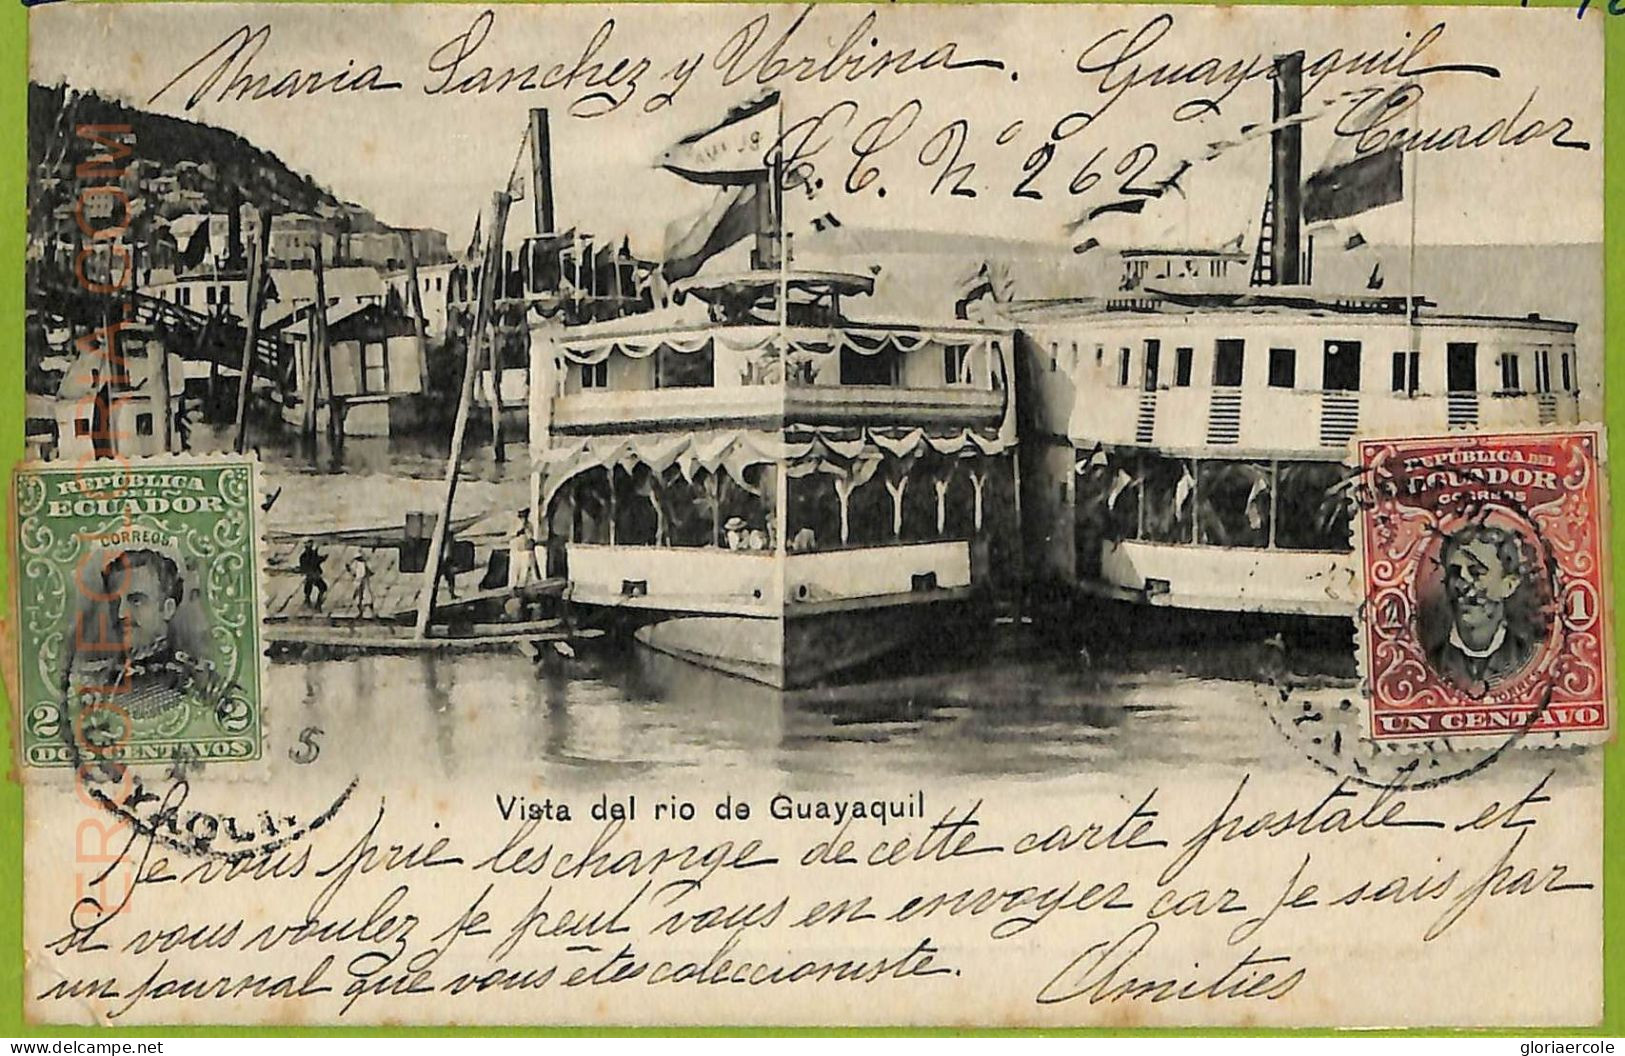 Maria Sanchez y Urbina. Guayaquil
Ecuador
C. C. Nº 262
REPÚBLICA
DEL
ECUADOR
CORREOS.
2 2
DOS CENTAVOS
REPÚBLICA DEL
ECUADOR
CORREOS
1
TORRES
UN CENTAVO
5
Vista del rio de Guayaquil
Je vous prie leschange de cette carte postale et
si vous voulez je peut vous en envoyer car je sais par
un journal que vous êtes coleccioniste.
Amities
ERCOLEGLORIA.COM
delcampe.net
gloriaercole